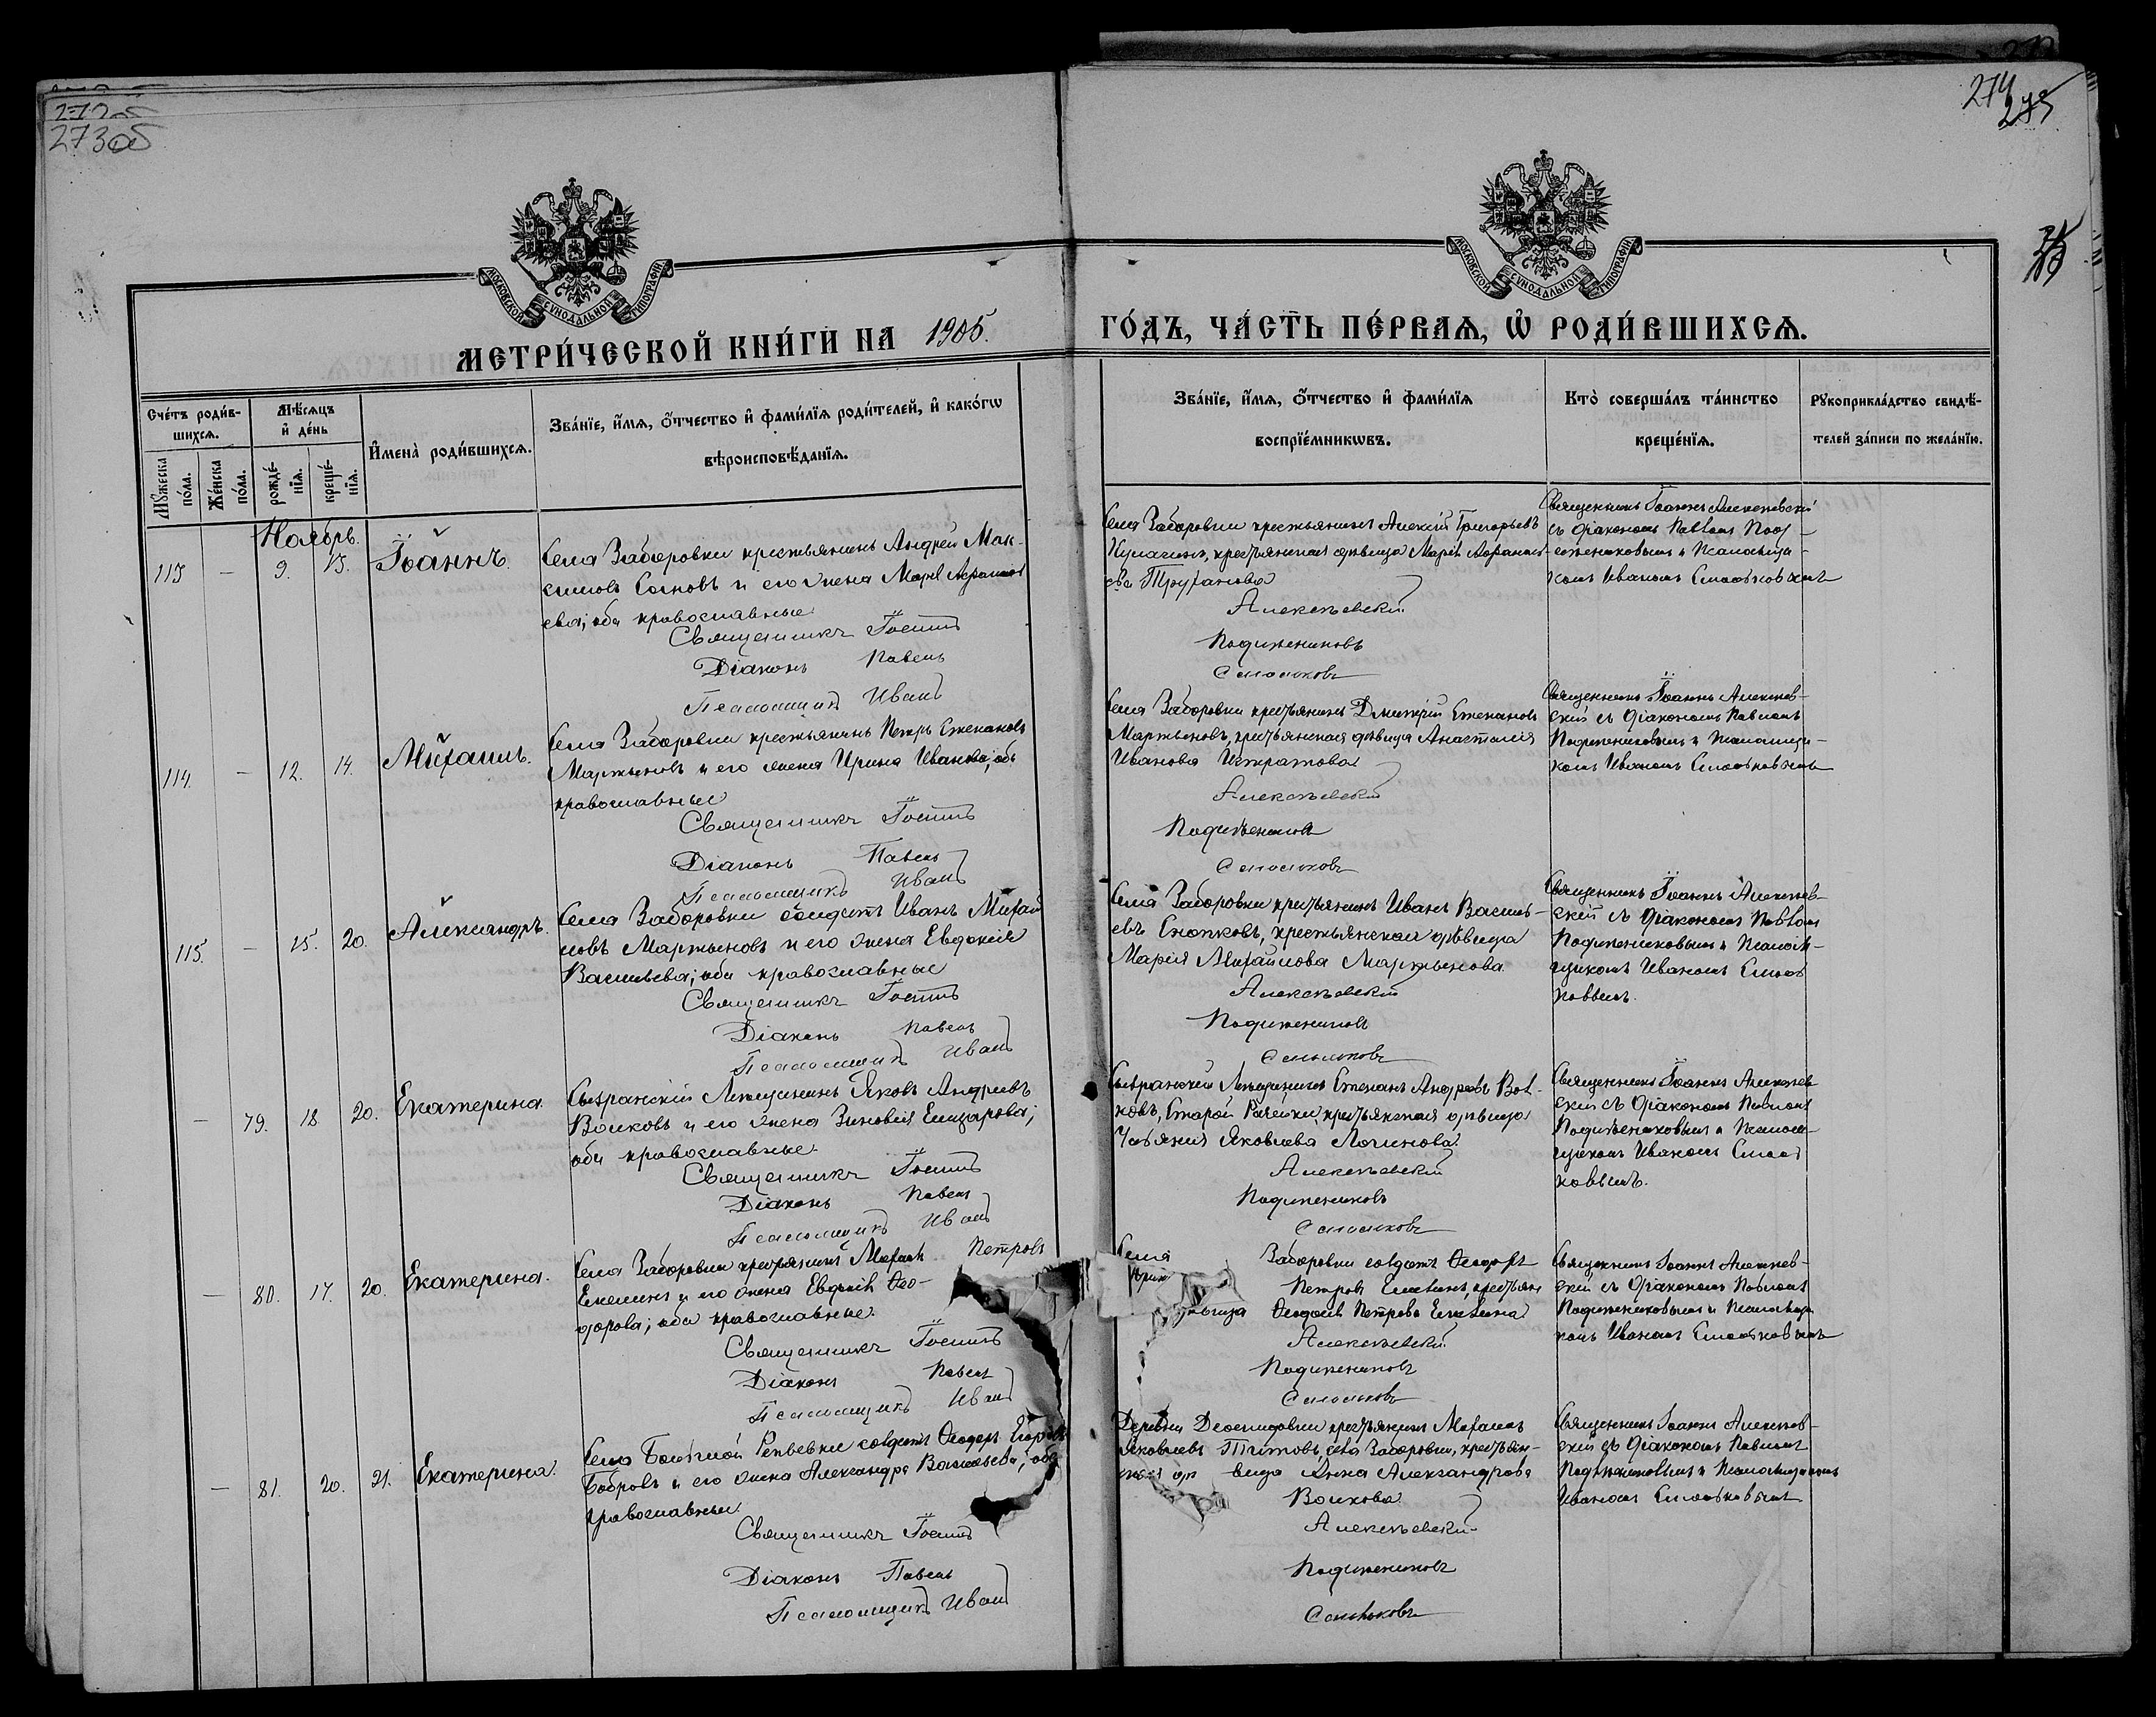 273об
274
275
МОСКОВСКОЙ СѴНОДАЛЬНОЙ ТИПОГРАФІИ
МОСКОВСКОЙ СѴНОДАЛЬНОЙ ТИПОГРАФІИ
МЕТРИ́ЧЕСКОЙ КНИ́ГИ НА 1905.
ГО́ДЪ, ЧА́СТЬ ПЕ́РВАѦ, Ѡ҆ РОДИ́ВШИХСѦ.
Сче́тъ роди́в-
шихсѧ.
Мꙋ́жеска по́ла.
Же́нска по́ла.
Мѣ́сѧцъ
и҆ де́нь
рожде́-
нїѧ.
креще́-
нїѧ.
И҆мена̀ роди́вшихсѧ.
Зва́нїе, и҆́мѧ, ѻ҆́тчество и҆ фами́лїѧ роди́телей, и҆ како́гѡ
вѣроисповѣ́данїѧ.
Зва́нїе, и҆́мѧ, ѻ҆́тчество и҆ фами́лїѧ
воспрїе́мникѡвъ.
Кто̀ соверша́лъ та́инство
креще́нїѧ.
Рꙋкоприкла́дство свидѣ́-
телей за́писи по жела́нїю.
Ноябрь.
113 — 9. 13. Іоаннъ.
Села Заборовки крестьянинъ Андрей Мак-
симовъ и его жена
ева; оба православные
Священникъ Іоаннъ
Діаконъ Павелъ
Псаломщикъ Иванъ
Села Заборовки крестьянинъ Алексій Григорьевъ
Кулагинъ, крестьянская дѣвица Марія
ева Труханова
Алексѣевскій
Подижениковъ
Смольковъ
Священникъ Іоаннъ Алексѣевскій
съ діакономъ Павломъ Поди-
жениковымъ и псаломщи-
комъ Иваномъ Смольковымъ
114. — 12. 14. Михаилъ.
Села Заборовки крестьянинъ Петръ Степановъ
Мартьяновъ и его жена Ирина Иванова; оба
православные
Священникъ Іоаннъ
Діаконъ Павелъ
Псаломщикъ Иванъ
Села Заборовки крестьянинъ Димитрій Степановъ
Мартьяновъ, крестьянская дѣвица Анастасія
Иванова
Алексѣевскій
Подижениковъ
Смольковъ
Священникъ Іоаннъ Алексѣев-
скій съ діакономъ Павломъ
Подижениковымъ и псаломщи-
комъ Иваномъ Смольковымъ
115. — 15. 20. Александръ.
Села Заборовки солдатъ Иванъ Михай
ловъ Мартьяновъ и его жена Евдокія
Васильева; оба православные
Священникъ Іоаннъ
Діаконъ Павелъ
Псаломщикъ Иванъ
Села Заборовки крестьянинъ Иванъ Василь-
евъ Снопковъ, крестьянская дѣвица
Марія Михайлова Мартьянова
Алексѣевскій
Подижениковъ
Смольковъ
Священникъ Іоаннъ Алексѣев-
скій съ діакономъ Павломъ
Подижениковымъ и псаломщ-
щикомъ Иваномъ Смоль
ковымъ.
— 79. 18. 20. Екатерина.
Сызранскій Мѣщанинъ Яковъ Андреевъ
Волковъ и его жена Зиновія Елизарова;
оба православные.
Священникъ Іоаннъ
Діаконъ Павелъ
Псаломщикъ Иванъ
Сызранскій Мѣщанинъ Степанъ Андреевъ Вол-
ковъ, Старой Рачейки, крестьянская дѣвица
Ульянія Яковлева Логинова
Алексѣевскій
Подижениковъ
Смольковъ
Священникъ Іоаннъ Алексѣев
скій съ діакономъ Павломъ
Подижениковымъ и псалом-
щикомъ Иваномъ Смоль
ковымъ.
— 80. 17. 20. Екатерина.
Села Заборовки крестьянинъ Михаилъ Петровъ
Емелинъ и его жена Евдокія Ѳео-
дорова; оба православные.
Священникъ Іоаннъ
Діаконъ Павелъ
Псаломщикъ Иванъ
Села Заборовки солдатъ Ѳеодоръ
Петровъ Емелинъ, крестьян
дѣвица Петрова Емелина
Алексѣевскій
Подижениковъ
Смольковъ
Священникъ Іоаннъ Алексѣев-
скій съ діакономъ Павломъ
Подижениковымъ и псаломщи
комъ Иваномъ Смольковымъ
— 81. 20. 21. Екатерина.
Села Большой Репьевки солдатъ Ѳеодоръ Егоровъ
Бобровъ и его жена Александра Васильева; оба
православные
Священникъ Іоаннъ
Діаконъ Павелъ
Псаломщикъ Иванъ
Деревни крестьянинъ Михаилъ
Яковлевъ Титовъ, села Заборовки, крестьян-
ская дѣвица Анна Александрова
Волкова
Алексѣевскій
Подижениковъ
Смольковъ
Священникъ Іоаннъ Алексѣев-
скій съ діакономъ Павломъ
Подижениковымъ и псаломщикомъ
Иваномъ Смольковымъ